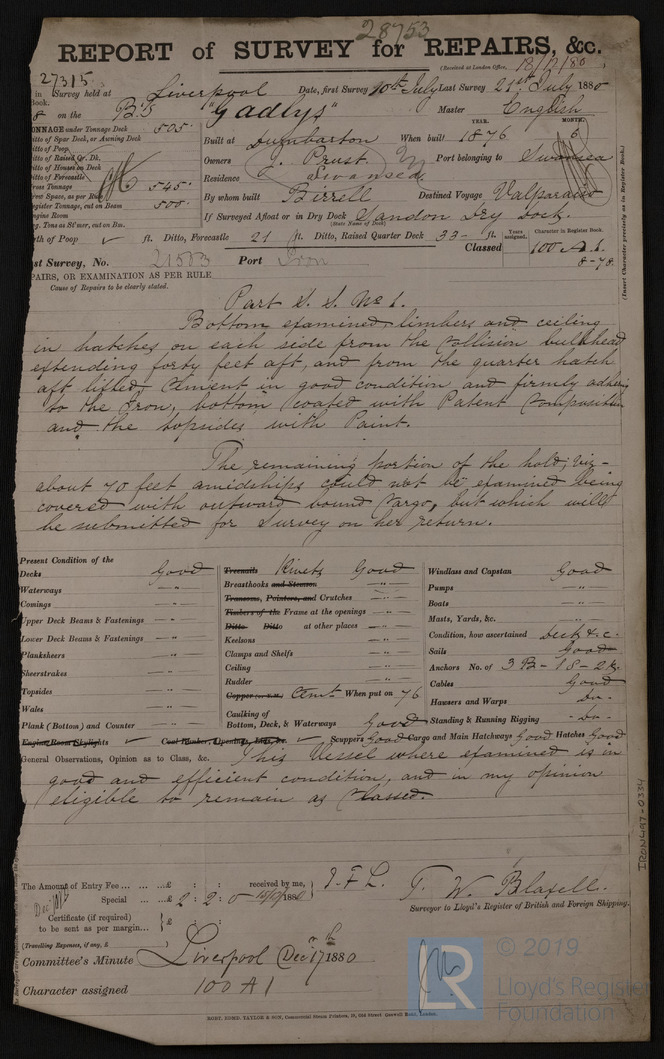 28753
REPORT of SURVEY for REPAIRS, &c.
(Received at London Office, 18/12/80
27315
in Survey held at Liverpool Date, first Survey 10th July Last Survey 21st July 1880
Book.
8 on the Bk "Gadlys" Master English
TONNAGE under Tonnage Deck 505.
Ditto of Spar Deck, or Awning Deck
Ditto of Poop
Ditto of Raised Qr. Dk.
Ditto of Houses on Deck
Ditto of Forecastle
Gross Tonnage 545.
Register Tonnage, cut on Beam 500.
Engine Room
YEAR. MONTH.
Built at Dumbarton When built 1876 6
Owners J. Prust Port belonging to Swansea
Residence Swansea
By whom built Birrell Destined Voyage Valparaiso
If Surveyed Afloat or in Dry Dock Sandon Dry Dock.
(State Name of Dock)
Length of Poop ✓ ft. Ditto, Forecastle 21 ft. Ditto, Raised Quarter Deck 33 ft.
Years assigned. Character in Register Book.
Classed 100 A.1.
8-78
(Insert Character precisely as in Register Book.)
Last Survey, No. 21583 Port Iron
REPAIRS, OR EXAMINATION AS PER RULE
Cause of Repairs to be clearly stated.
Part S. S. No 1.
Bottom examined, limbers and ceiling
in hatches on each side from the collision bulkhead
extending forty feet aft, and from the quarter hatch
aft lifted, Cement in good condition and firmly adhering
to the Iron, bottom coated with Patent Composition
and the topsides with Paint.
The remaining portion of the hold, viz-
about 70 feet amidships could not be examined being
covered with outward bound Cargo, but which will
be submitted for Survey on her return.
Present Condition of the
Decks Good
Waterways - " -
Comings - " -
Upper Deck Beams & Fastenings - " -
Lower Deck Beams & Fastenings - " -
Planksheers - " -
Sheerstrakes - " -
Topsides - " -
Wales - " -
Plank (Bottom) and Counter - " -
Engine Room Skylights ✓
Treenails Rivets Good
Breasthooks and Stemson - " -
Transoms, Pointers, and Crutches - " -
Timbers of the Frame at the openings - " -
Ditto Ditto at other places - " -
Keelsons - " -
Clamps and Shelfs - " -
Ceiling - " -
Rudder - " -
Copper or Y.M. Cemt When put on 76
Caulking of
Bottom, Deck, & Waterways Good
Coal Bunker, Openings, Lids, &c. ✓ Scuppers Good Cargo and Main Hatchways Good Hatches Good
Windlass and Capstan Good
Pumps - " -
Boats - " -
Masts, Yards, &c. - " -
Condition, how ascertained Deck &c.
Sails Good
Anchors No. of 3 B - 1 S - 2 K.
Cables Good
Hawsers and Warps - Do -
Standing & Running Rigging - Do -
General Observations, Opinion as to Class, &c. This Vessel where examined is in
good and efficient condition, and in my opinion
eligible to remain as Classed.
The Amount of Entry Fee ... ... ...£ : : received by me,
Special ... ...£ 2 : 2 : 0 1880
Certificate (if required)
to be sent as per margin... £ : :
(Travelling Expenses, if any, £ )
J. F. L.
T. W. Blaxell.
Surveyor to Lloyd's Register of British and Foreign Shipping.
Committee's Minute Liverpool Dec 17th 1880
Character assigned 100 A 1
ROBT. ROMD. TAYLOR & SON, Commercial Steam Printers, 19, Old Street Goswell Road, London.
IRON497-0334
LR
© 2019
Lloyd's Register
Foundation